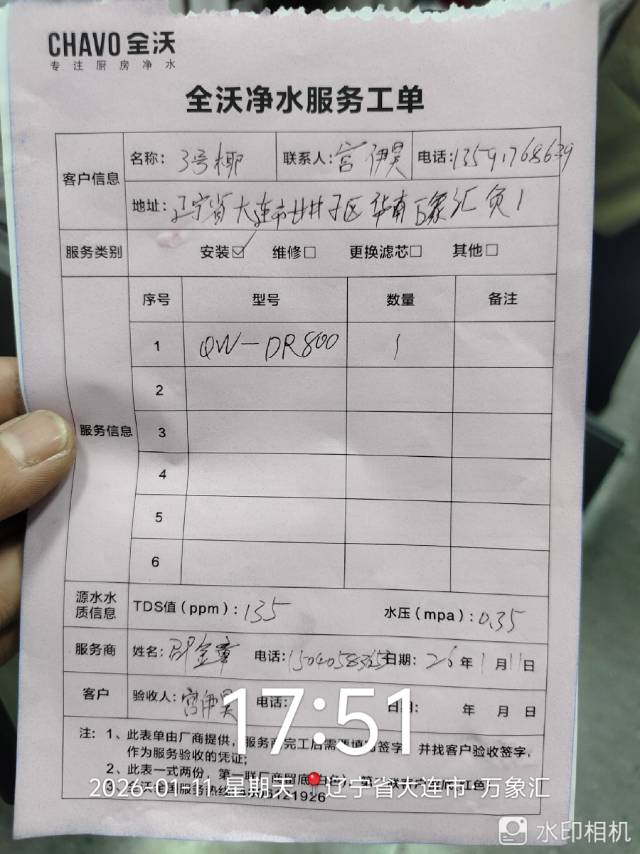 CHAVO 全沃
专注厨房净水
全沃净水服务工单
客户信息 名称: 3号椰 联系人: 宫伊昊 电话: 13591768639
地址: 辽宁省大连市甘井子区华南万象汇负1
服务类别 安装☑ 维修□ 更换滤芯□ 其他□
服务信息 序号 型号 数量 备注
1 QW-DR800 1
2
3
4
5
6
源水水质信息 TDS值(ppm): 135 水压(mpa): 0.35
服务商 姓名: 金章 电话: 日期: 26年1月11日
客户 验收人: 宫伊昊 电话: 日期: 年 月 日
17:51
注: 1、此表单由厂商提供, 服务商完工后需要填写签字, 并找客户验收签字,
作为服务验收的凭证;
2、此表一式两份, 第一联厂商留底
2026-01-11 星期天 辽宁省大连市·万象汇
水印相机